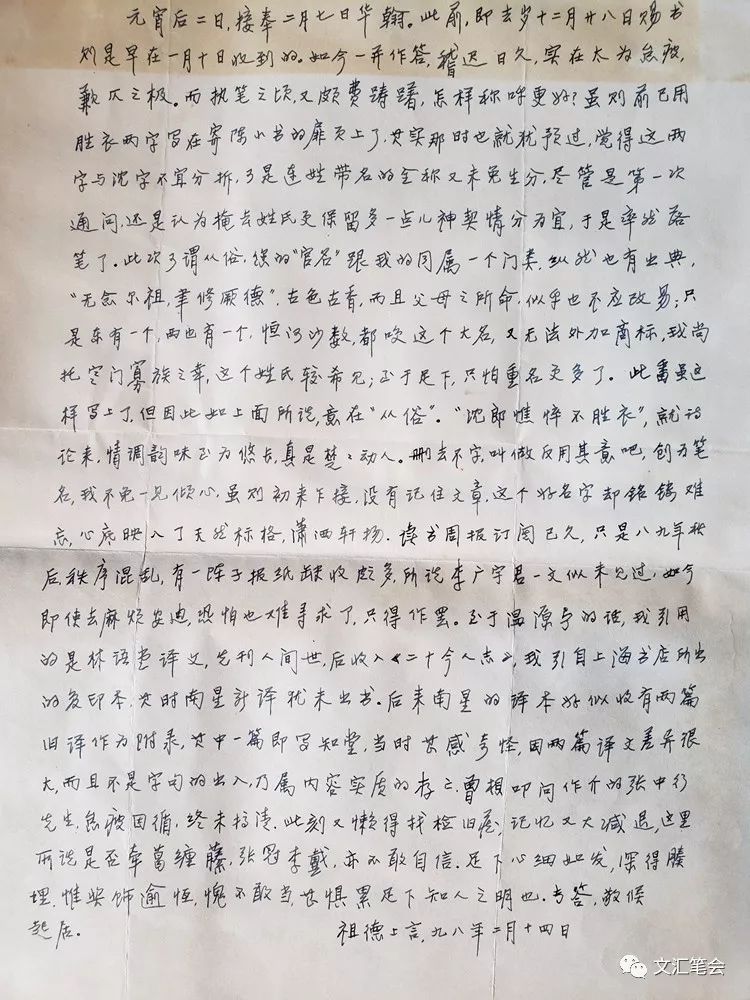 元宵后二日,接奉二月七日华翰。此前,即去岁十二月廿八日赐书
则是早在一月十日收到的。如今一并作答,稽迟日久,实在太为怠疲,
歉仄之极。而执笔之顷,又颇费踌躇,怎样称呼更好?虽则前已用
胜衣两字写在寄陈小书的扉页上了,其实那时也就犹预过,觉得这两
字与沈字不宜分拆,可是连姓带名的全称又未免生分,尽管是第一次
通问,还是认为掩去姓氏更保留多一点儿神契情分为宜,于是率然落
笔了。此次可谓从俗,缘的“官名”跟我的同属一个门类,纵然也有出典,
“无念尔祖,聿修厥德”,古色古香,而且父母之所命,似乎也不应改易;只
是东有一个,西也有一个,恒河沙数,都唤这个大名,又无法外加商标,我尚
托寒门寡族之幸,这个姓氏较希见;至于足下,只怕重名更多了。此番虽这
样写上了,但因此如上面所说,意在“从俗”。“沈郎憔悴不胜衣”,就诗
论来,情调韵味至为悠长,真是楚楚动人。删去不字,叫做反用其意吧,创为笔
名,我不免一见倾心,虽则初来乍接,没有记住文章,这个好名字却铭镌难
忘,心底映入了天然标格,潇洒轩扬。读书周报订阅已久,只是八九年秋
后,秩序混乱,有一阵子报纸缺收颇多,所说李广宇君一文似未见过,如今
即使去麻烦安迪,恐怕也难寻求了,只得作罢。至于温源宁的话,我引用
的是林语堂译文,先刊人间世,后收入《二十今人志》,我引自上海书店所出
的复印本,其时南星新译犹未出书。后来南星的译本好似收有两篇
旧译作为附录,其中一篇即写知堂,当时甚感奇怪,因两篇译文差异很
大,而且不是字句的出入,乃属内容实质的存亡,曾相叩问作介的张中行
先生,怠疲因循,终未搞清。此刻又懒得找检旧卷,记忆又大减退,这里
所说是否牵葛缠藤,张冠李戴,亦不敢自信。足下心细如发,深得腠
理,惟奖饰逾恒,愧不敢当,甚惧累足下知人之明也。专答,敬候
起居。
祖德上言,九八年二月十四日
文汇笔会